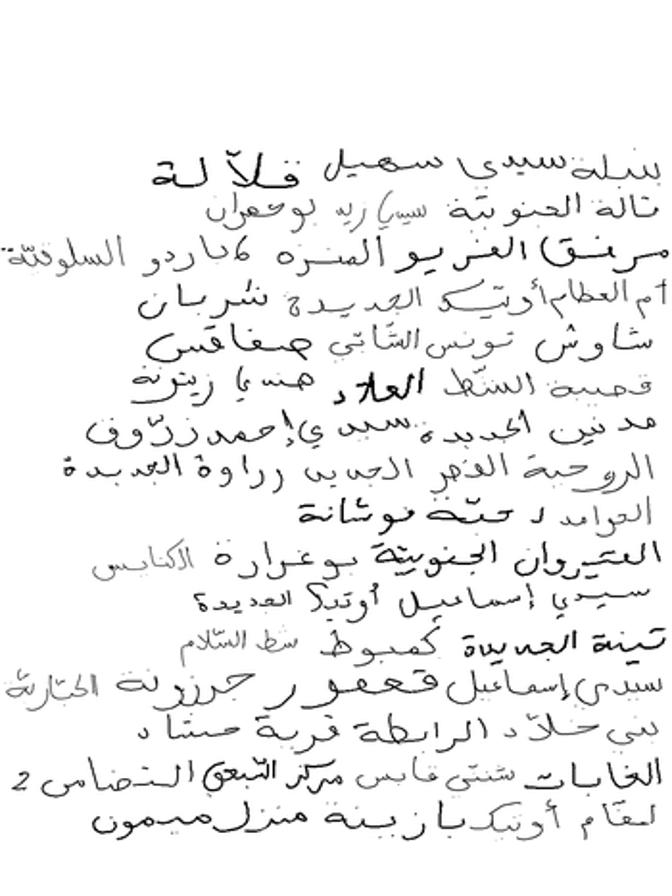 سيدي سهيل قلاّلة
تالة الجنوبيّة سيدي زيد بوجعران
مرفق الغريو المنزه 6 باردو السلوقيّة
أم العظام أوتيك الجديدة شربان
شاوش تونس الشّاتي صفاقس
قصيبة الشّط العلاد هنشي زيتونة
مدنين الجديدة سيدي إحمد زرّوف
الروحية الفجر الجديد رراوة الجديدة
العوامد فوشانة
القيروان الجنوبيّة بوغرارة الكنايس
سيدي إسماعيل أوتيك الجديدة
تينة الجديدة كمبوط شط السّلام
سيدي إسماعيل قعفور جرزونة
بني خلاّد الرابطة قرية
الغابات شنتي قابس مركز التّضامن 2
لمقام أوتيك بازينة منزل ميمون